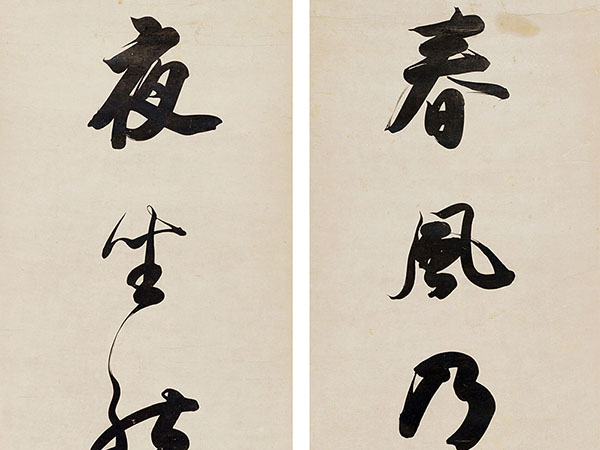 春風乃
夜坐